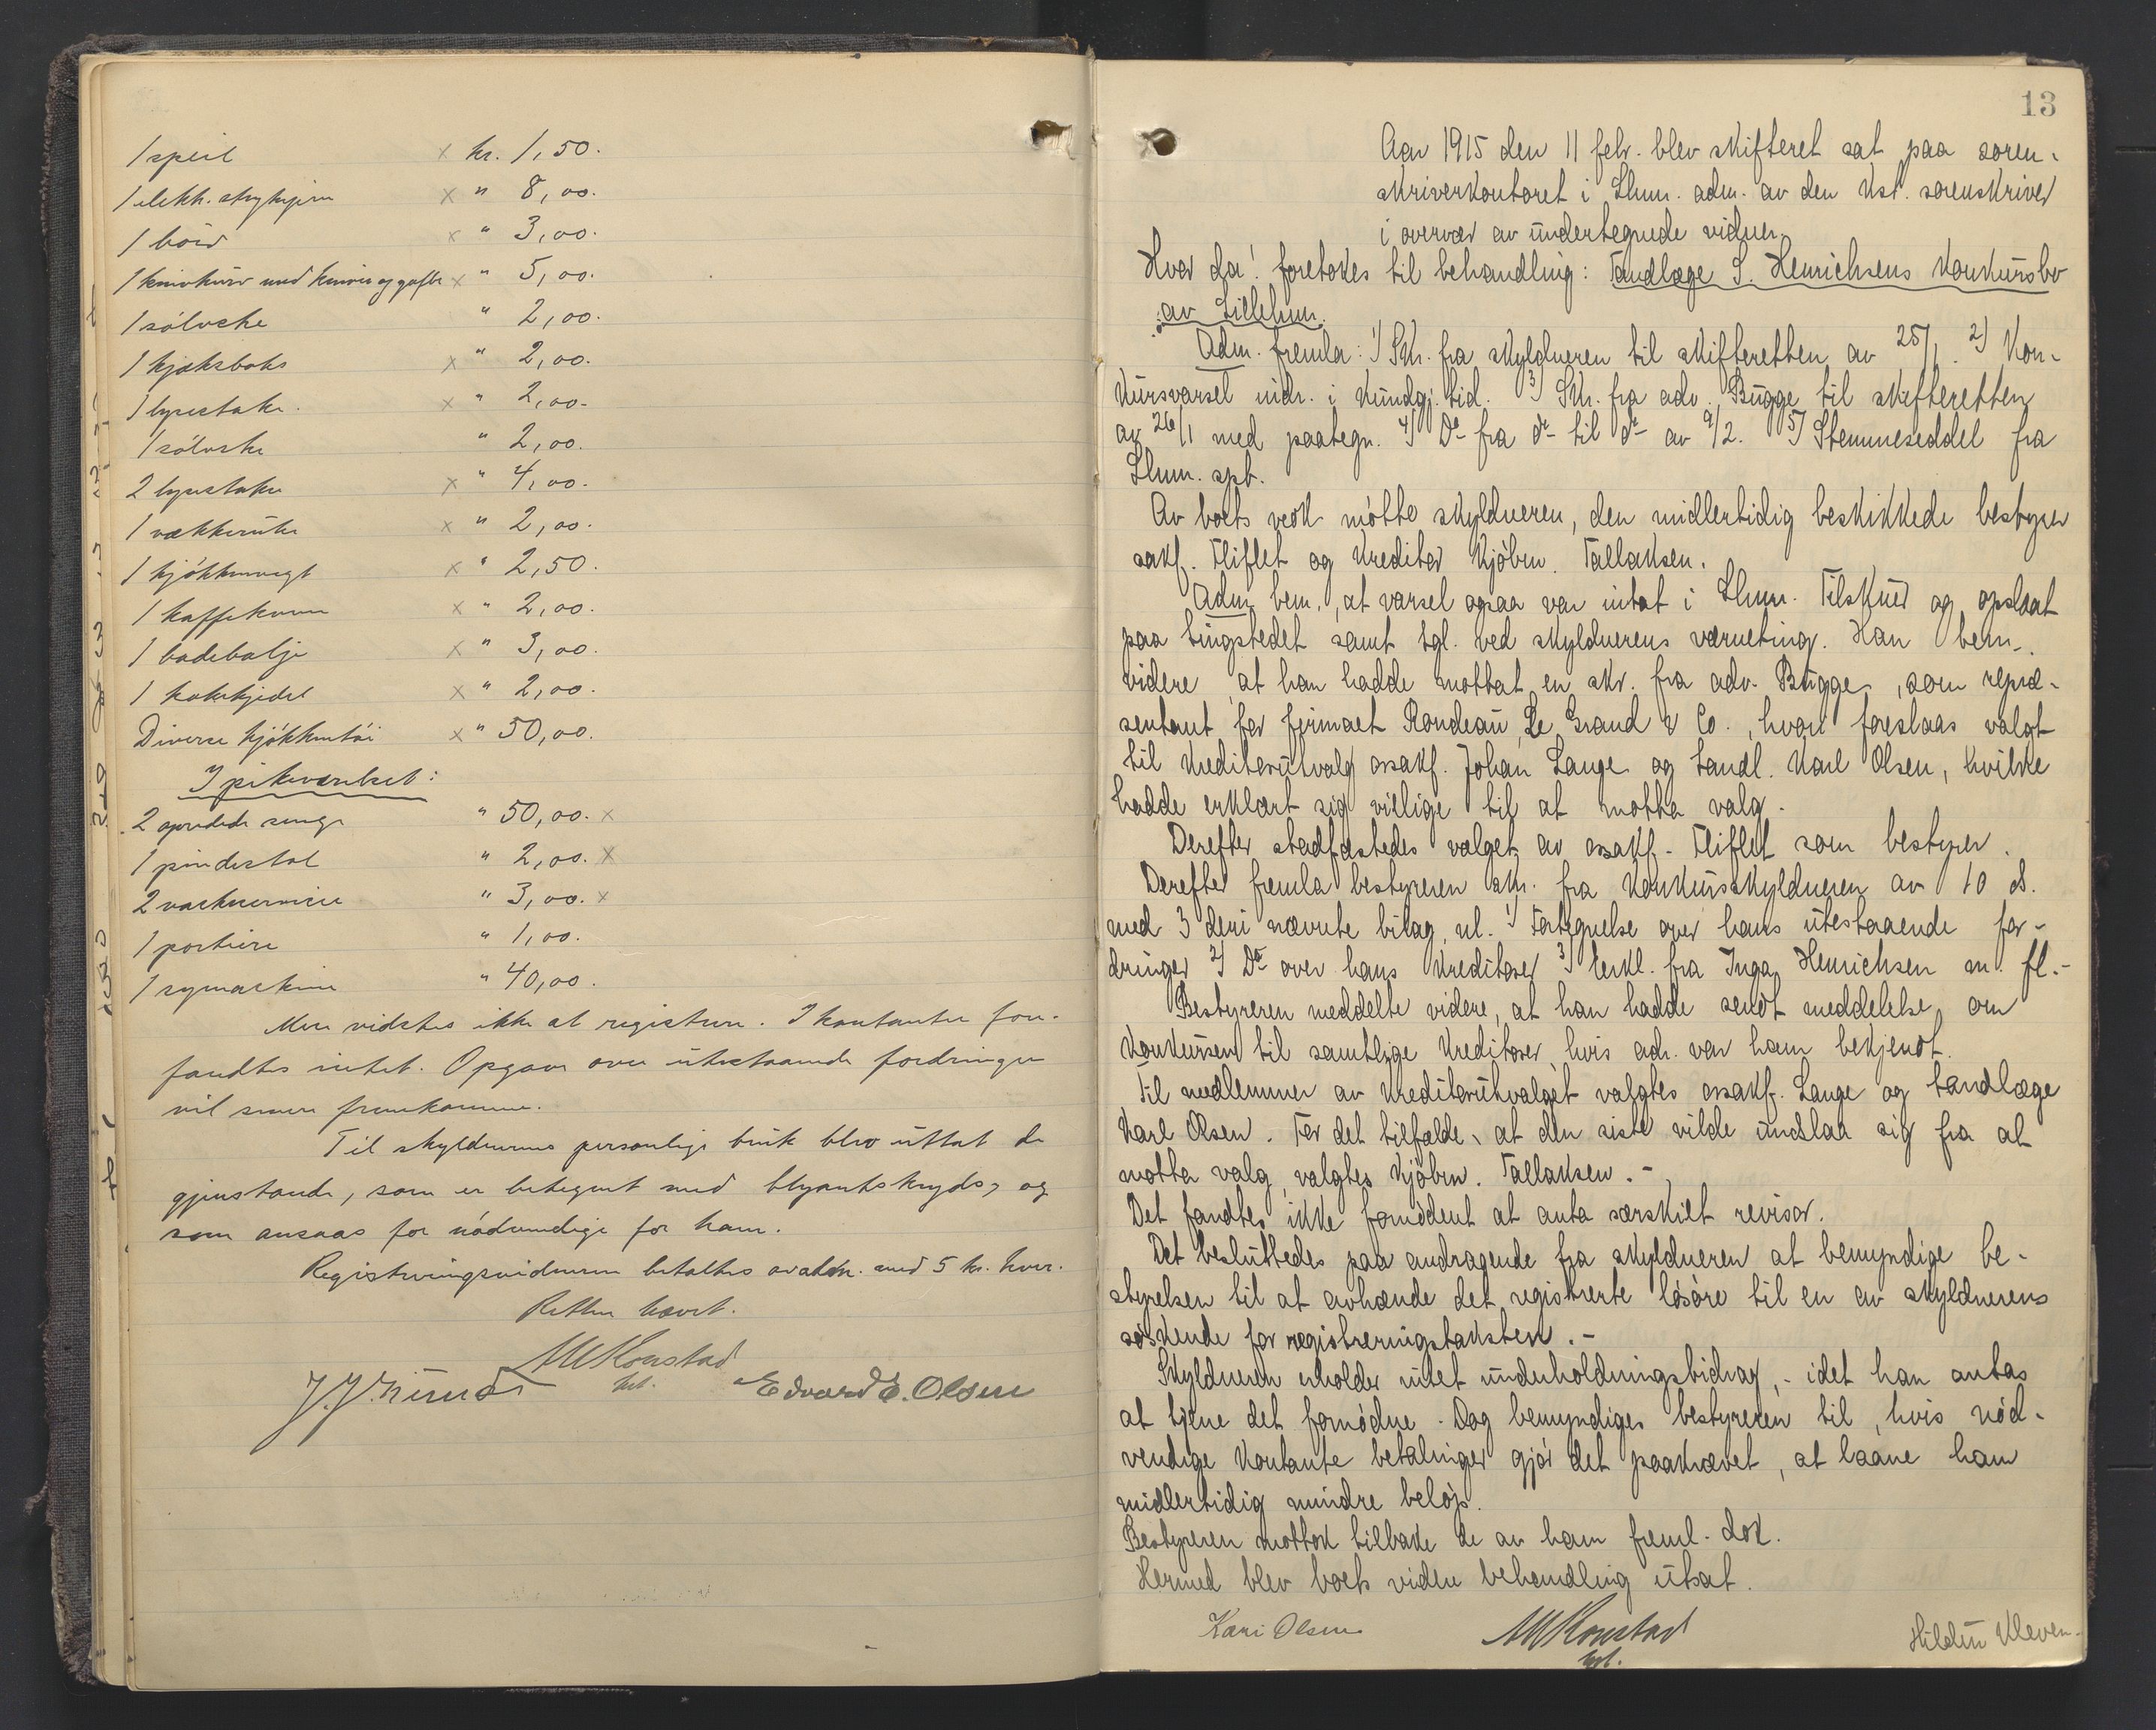 1 speil x kr. 1,50.
1 elektr. strykejern x " 8,00.
1 bord x " 3,00.
1 knivkurv med kniver og gafler x " 5,00.
1 sölvske " 2,00.
1 kjæksboks x " 2,00.
1 lysestake. x " 2,00.
1 sölvske " 2,00.
2 lysestaker x " 4,00.
1 vækkeruhr x " 2,00.
1 kjökkenvegt x " 2,50.
1 kaffekvern x " 2,00.
1 badebalje x " 3,00.
1 kokekjedel x " 2,00.
Diverse kjökkentöi x " 50,00.
I pikeværelset:
2 opredde senger " 50,00. x
1 pindestol " 2,00. x
2 vaskeservicer " 3,00. x
1 portiere " 1,00.
1 symaskine " 40,00.
Mere vidstes ikke at registrere. I kontanter fore-
fandtes intet. Opgave over utestaaende fordringer
vil senere fremkomme.
Til skyldnerens personlige bruk blev uttat de
gjenstande, som er betegnet med blyantskryds, og
som ansaaes for nödvendige for ham.
Registreringsvidnerne betaltes av adm. med 5 kr. hver.
Retten hævet.
AWKonstad
kst.
Edvard E. Olsen
13
Aar 1915 den 11 febr. blev skifteret sat paa soren-
skriverkontoret i Lhmr. adm. av den kst. sorenskriver
i overvær av undertegnede vidner.
Hvor da! foretokes til behandling: Tandlæge S. Henrichsens konkursbo
av Lillehmr.
Adm. fremla: 1) Skr. fra skyldneren til skifteretten av 25/1. 2) Kon-
kursvarsel indr. i kundgj. tid. 3) Skr. fra adv. Bugge til skifteretten
av 26/1 med paategn. 4) Do fra do til do av 9/2. 5) Stemmeseddel fra
Lhmr. spb.
Av boets vedk. mötte skyldneren, den midlertidig beskikkede bestyrer
sakf. Fliflet og kreditor kjöbm. Tallaksen.
Adm. bem., at varsel ogsaa var intat i Lhmr. Tilskuer og opslaat
paa tingstedet samt tgl. ved skyldnerens værneting. Han bem.
videre at han hadde mottat en skr. fra adv. Bugge, som repræ-
sentant for firmaet Rondeau, Le Grand & Co., hvori foreslaas valgt
til kreditorutvalg osakf. Johan Lange og tandl. Karl Olsen, hvilke
hadde erklært sig villige til at motta valg.
Derefter stadfæstedes valget av osakf. Fliflet som bestyrer.
Derefter fremla bestyreren skr. fra konkursskyldneren av 10 ds.
med 3 deri nævnte bilag, nl. 1) Fortegnelse over hans utestaaende for-
dringer 2) Do over hans kreditorer 3) Erkl. fra Inga Henrichsen m. fl.-
Bestyreren meddelte videre, at han hadde sendt meddelelse om
konkursen til samtlige kreditorer, hvis adr. var ham bekjendt.
Til medlemmer av kreditorutvalget valgtes osakf. Lange og tandlæge
Karl Olsen. For det tilfælde, at den siste vilde undslaa sig fra at
motta valg, valgtes kjöbm. Tallaksen.-
Det fandtes ikke fornödent at anta særskilt revisor.
Det besluttedes paa andragende fra skyldneren at bemyndige be-
styrelsen til at avhænde det registrerte lösöre til en av skyldnerens
söskende for registreringstaksten.-
Skyldneren erholder intet underholdningsbidrag,- idet han antas
at tjene det fornödne. Dog bemyndiges bestyreren til, hvis nöd-
vendige kontante betalinger gjör det paakrævet, at laane ham
midlertidig mindre belöp.
Bestyreren mottok tilbake de av ham freml. dok.
Hermed blev boets videre behandling utsat.
Kari Olsen AWKonstad Hildur Kleven.
kst.